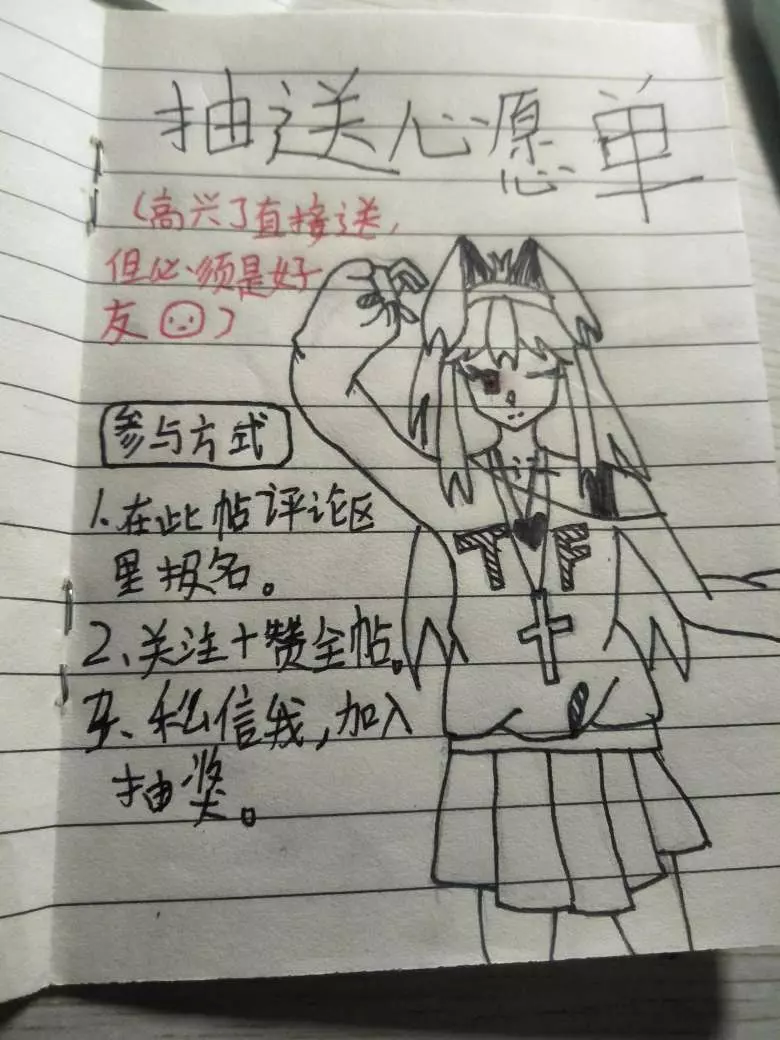 抽送心愿单
（高兴了直接送，
但必须是好
友）
参与方式
1.在此帖评论区
里报名。
2、关注+赞全帖。
3、私信我，加入
抽奖。
TF